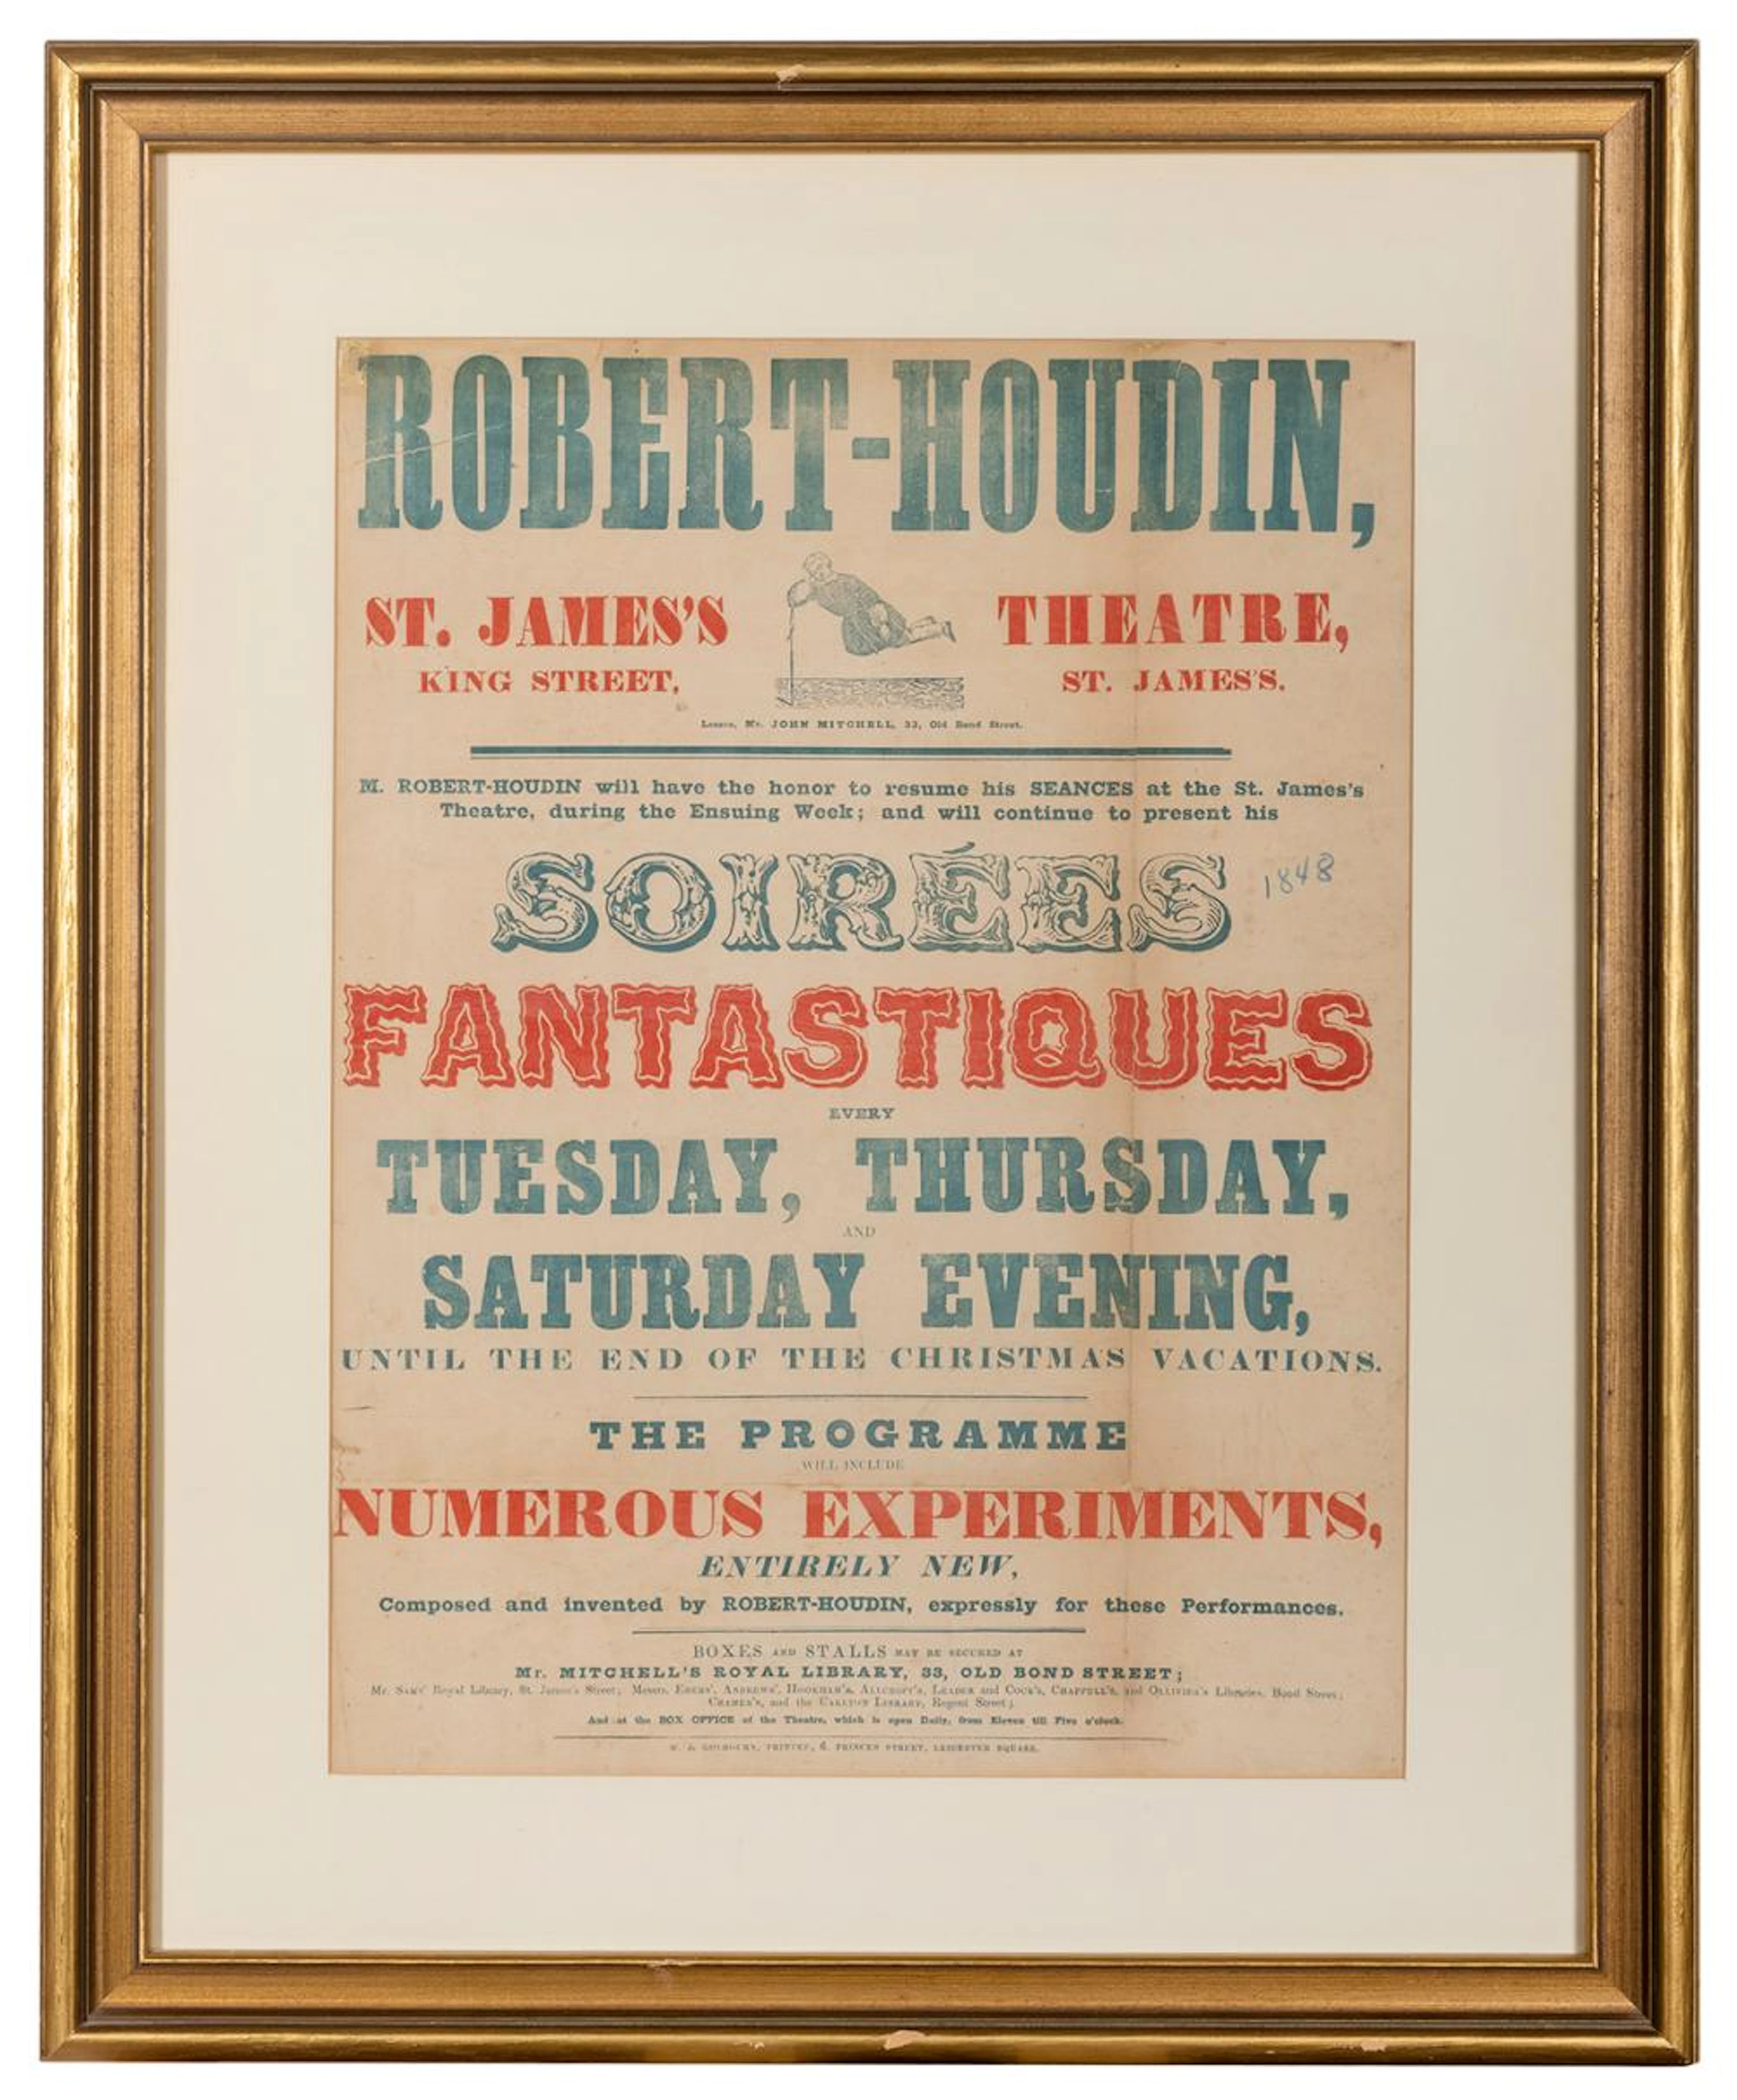 ROBERT-HOUDIN,
ST. JAMES'S THEATRE,
KING STREET, ST. JAMES'S.
Lessee, Mr. JOHN MITCHELL, 33, Old Bond Street.
M. ROBERT-HOUDIN will have the honor to resume his SEANCES at the St. James's
Theatre, during the Ensuing Week; and will continue to present his
SOIRÉES
1848
FANTASTIQUES
EVERY
TUESDAY, THURSDAY,
AND
SATURDAY EVENING,
UNTIL THE END OF THE CHRISTMAS VACATIONS.
THE PROGRAMME
WILL INCLUDE
NUMEROUS EXPERIMENTS,
ENTIRELY NEW,
Composed and invented by ROBERT-HOUDIN, expressly for these Performances.
BOXES AND STALLS MAY BE SECURED AT
Mr. MITCHELL'S ROYAL LIBRARY, 33, OLD BOND STREET;
Mr. SAMS' Royal Library, St. James's Street; Messrs. EBERS', ANDREWS', HOOKHAM'S, ALLCROFT'S, LEADER and COCK'S, CHAPPELL'S, and OLLIVIER'S Libraries, Bond Street;
CRAMER'S, and the CARLTON LIBRARY, Regent Street;
And at the BOX OFFICE of the Theatre, which is open Daily, from Eleven till Five o'clock.
PRINTER, 6, PRINCES STREET, LEICESTER SQUARE.